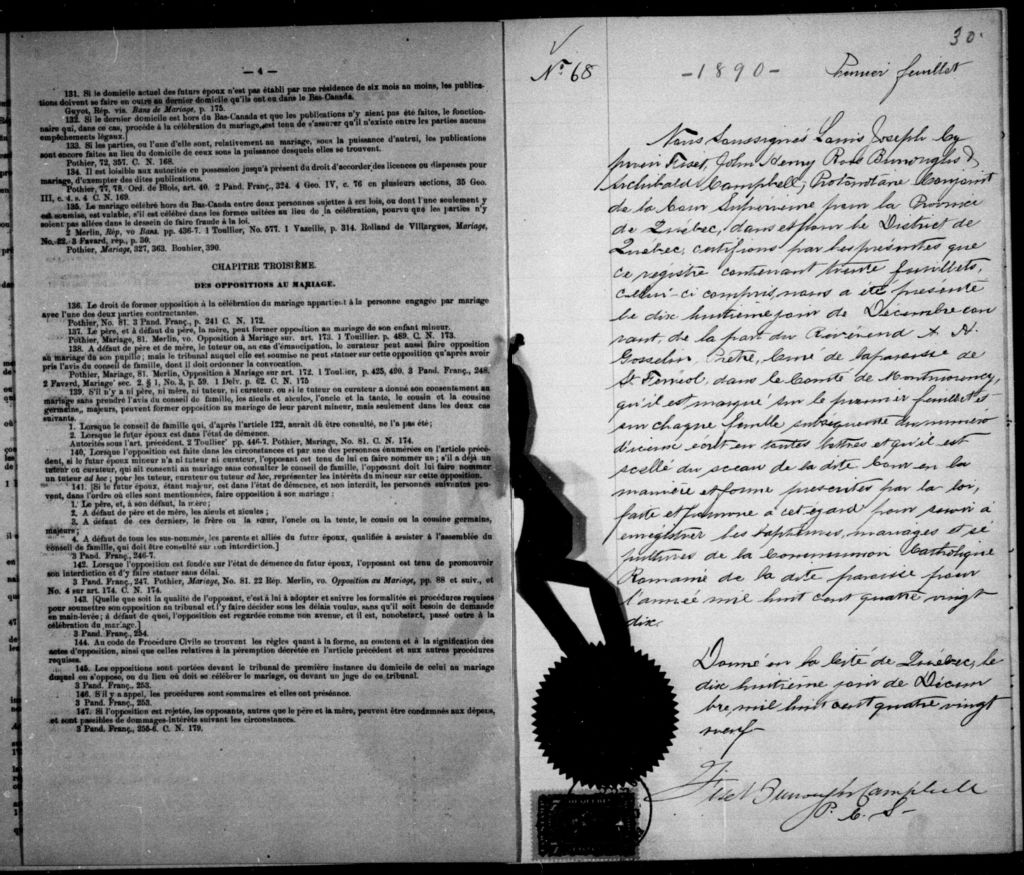 — 4 —
131. Si le domicile actuel des futurs époux n'est pas établi par une résidence de six mois au moins, les publica-
tions doivent se faire en outre au dernier domicile qu'ils ont eu dans le Bas-Canada.
Guyot, Rép. vis. Bans de Mariage, p. 175.
132. Si le dernier domicile est hors du Bas-Canada et que les publications n'y aient pas été faites, le fonction-
naire qui, dans ce cas, procède à la célébration du mariage, est tenu de s'assurer qu'il n'existe entre les parties aucuns
empêchements légaux.]
133. Si les parties, ou l'une d'elle sont, relativement au mariage, sous la puissance d'autrui, les publications
sont encore faites au lieu du domicile de ceux sous la puissance desquels elles se trouvent.
Pothier, 72, 357. C. N. 168.
134. Il est loisible aux autorités en possession jusqu'à présent du droit d'accorder des licences ou dispenses pour
mariage, d'exempter des dites publications.
Pothier, 77, 78. Ord. de Blois, art. 40. 2 Pand. Franç., 324. 4 Geo. IV, c. 76 en plusieurs sections, 35 Geo.
III, c. 4. s. 4 C. N. 169.
135. Le mariage célébré hors du Bas-Canada entre deux personnes sujettes à ses lois, ou dont l'une seulement y
est soumise, est valable, s'il est célébré dans les formes usitées au lieu de la célébration, pourvu que les parties n'y
soient pas allées dans le dessein de faire fraude à la loi.
2 Merlin, Rép, vo Bans. pp. 436-7. 1 Toullier, No. 577. 1 Vazeille, p. 314. Rolland de Villargues, Mariage,
No. 22. 3 Favard, rép., p. 50.
Pothier, Mariage, 327, 363. Bouhier, 390.
CHAPITRE TROISIÈME.
DES OPPOSITIONS AU MARIAGE.
136. Le droit de former opposition à la célébration du mariage appartient à la personne engagée par mariage
avec l'une des deux parties contractantes.
Pothier, No. 81. 3 Pand. Franç., p. 241 C. N. 172.
137. Le père, et à défaut du père, la mère, peut former opposition au mariage de son enfant mineur.
Pothier, Mariage, 81. Merlin, vo. Opposition à Mariage sur. art. 173. 1 Touillier, p. 489. C. N. 173.
138. A défaut de père et de mère, le tuteur ou, au cas d'émancipation, le curateur peut aussi faire opposition
au mariage de son pupille; mais le tribunal auquel elle est soumise ne peut statuer sur cette opposition qu'après avoir
pris l'avis du conseil de famille, dont il doit ordonner la convocation.
Pothier, Mariage, 81. Merlin, vo. Opposition à Mariage sur art. 172. 1 Toullier, p. 425, 490. 3 Pand. Franç., 248.
2 Favard, Mariage sec. 2. § 1, No. 3, p. 59. 1 Delv. p. 62. C. N. 175
139. S'il n'y a ni père, ni mère, ni tuteur, ni curateur, ou si le tuteur ou curateur a donné son consentement au
mariage sans prendre l'avis du conseil de famille, les aïeuls et aïeules, l'oncle et la tante, le cousin et la cousine
germains, majeurs, peuvent former opposition au mariage de leur parent mineur, mais seulement dans les deux cas
suivants.
1. Lorsque le conseil de famille qui, d'après l'article 122, aurait dû être consulté, ne l'a pas été;
2. Lorsque le futur époux est dans l'état de démence.
Autorités sous l'art. précédent. 2 Toullier pp. 446-7. Pothier, Mariage, No. 81. C. N. 174.
140. Lorsque l'opposition est faite dans les circonstances et par une des personnes énumérées en l'article précé-
dent, si le futur époux mineur n'a ni tuteur ni curateur, l'opposant est tenu de lui en faire nommer un; s'il a déjà un
tuteur ou curateur, qui ait consenti au mariage sans consulter le conseil de famille, l'opposant doit lui faire nommer
un tuteur ad hoc; pour les tuteur, curateur ou tuteur ad hoc, représenter les intérêts du mineur sur cette opposition.
141. [Si le futur époux, étant majeur, est dans l'état de démence, et son interdit, les personnes suivantes peu-
vent, dans l'ordre où elles sont mentionnées, faire opposition à son mariage:
1. Le père, et, à son défaut, la mère;
2. A défaut de père et de mère, les aïeuls et aïeules;
3. A défaut de ces dernier, le frère ou la sœur, l'oncle ou la tante, le cousin ou la cousine germains,
majeurs;
4. A défaut de tous les sus-nommés, les parents et alliés du futur époux, qualifiés à assister à l'assemblée du
conseil de famille, qui doit être consulté sur son interdiction.]
3 Pand. Franç., 246-7.
142. Lorsque l'opposition est fondée sur l'état de démence du futur époux, l'opposant est tenu de promouvoir
son interdiction et d'y faire statuer sans délai.
3 Pand. Franç., 247. Pothier, Mariage, No. 81. 22 Rép. Merlin, vo. Opposition au Mariage, pp. 88 et suiv., et
No. 4 sur art. 174. C. N. 174.
143. [Quelle que soit la qualité de l'opposant, c'est à lui à adopter et suivre les formalités et procédures requises
pour soumettre son opposition au tribunal et l'y faire décider sous les délais voulus, sans qu'il soit besoin de demande
en main-levée; à défaut de quoi, l'opposition est regardée comme non avenue, et il est, nonobstant, passé outre à la
célébration du mariage.]
3 Pand. Franç., 254.
144. Au code de Procédure Civile se trouvent les règles quant à la forme, au contenu et à la signification des
actes d'opposition, ainsi que celles relatives à la péremption décrétée en l'article précédent et aux autres procédures
requises.
145. Les oppositions sont portées devant le tribunal de première instance du domicile de celui au mariage
duquel on s'oppose, ou du lieu où doit se célébrer le mariage, ou devant un juge de ce tribunal.
3 Pand. Franç., 253.
146. S'il y a appel, les procédures sont sommaires et elles ont préséance.
3 Pand. Franç., 253.
147. Si l'opposition est rejetée, les opposants, autres que le père et la mère, peuvent être condamnés aux dépens,
et sont passibles de dommages-intérêts suivant les circonstances.
3 Pand. Franç., 256-6. C. N. 179.
30.
No 68 -1890- Premier feuillet
Nous Soussignés Louis Joseph Cy
prien Fiset, John Henry Ross Burroughs &
Archibald Campbell, Protonotaire Conjoint
de la Cour Supérieure pour la Province
de Québec, dans et pour le District de
Québec, certifions par les présentes que
ce registre contenant trente feuillets,
celui-ci compris, nous a été présenté
le dix huitième jour de Décembre cou
rant, de la part du Révérend A. N.
Gosselin, Prêtre, Curé de la paroisse de
St Ferréol, dans le Comté de Montmorency,
qu'il est marqué sur le premier feuillet et
sur chaque feuille subséquente du numéro
d'icelui écrit en toutes lettres et qu'il est
scellé du sceau de la dite Cour en la
manière et forme prescrites par la loi,
faite et pourvue à cet égard pour servir à
enregistrer les baptêmes, mariages et sé
pultures de la Communion Catholique
Romaine de la dite paroisse pour
l'année mil huit cent quatre vingt
dix.
Donné en la Cité de Québec, le
dix huitième jour de Décem
bre, mil huit cent quatre vingt
neuf-
Fiset Burroughs Campbell
P. C. S-
QUEBEC